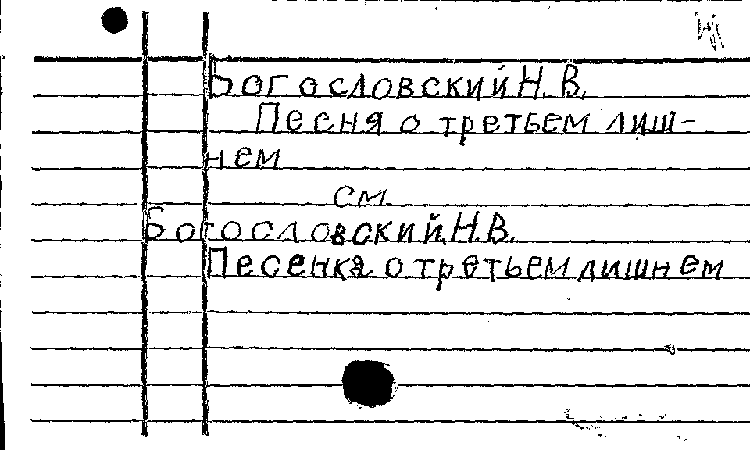 Богословский Н. В.
Песня о третьем лиш-
нем
см.
Богословский Н. В.
Песенка о третьем лишнем